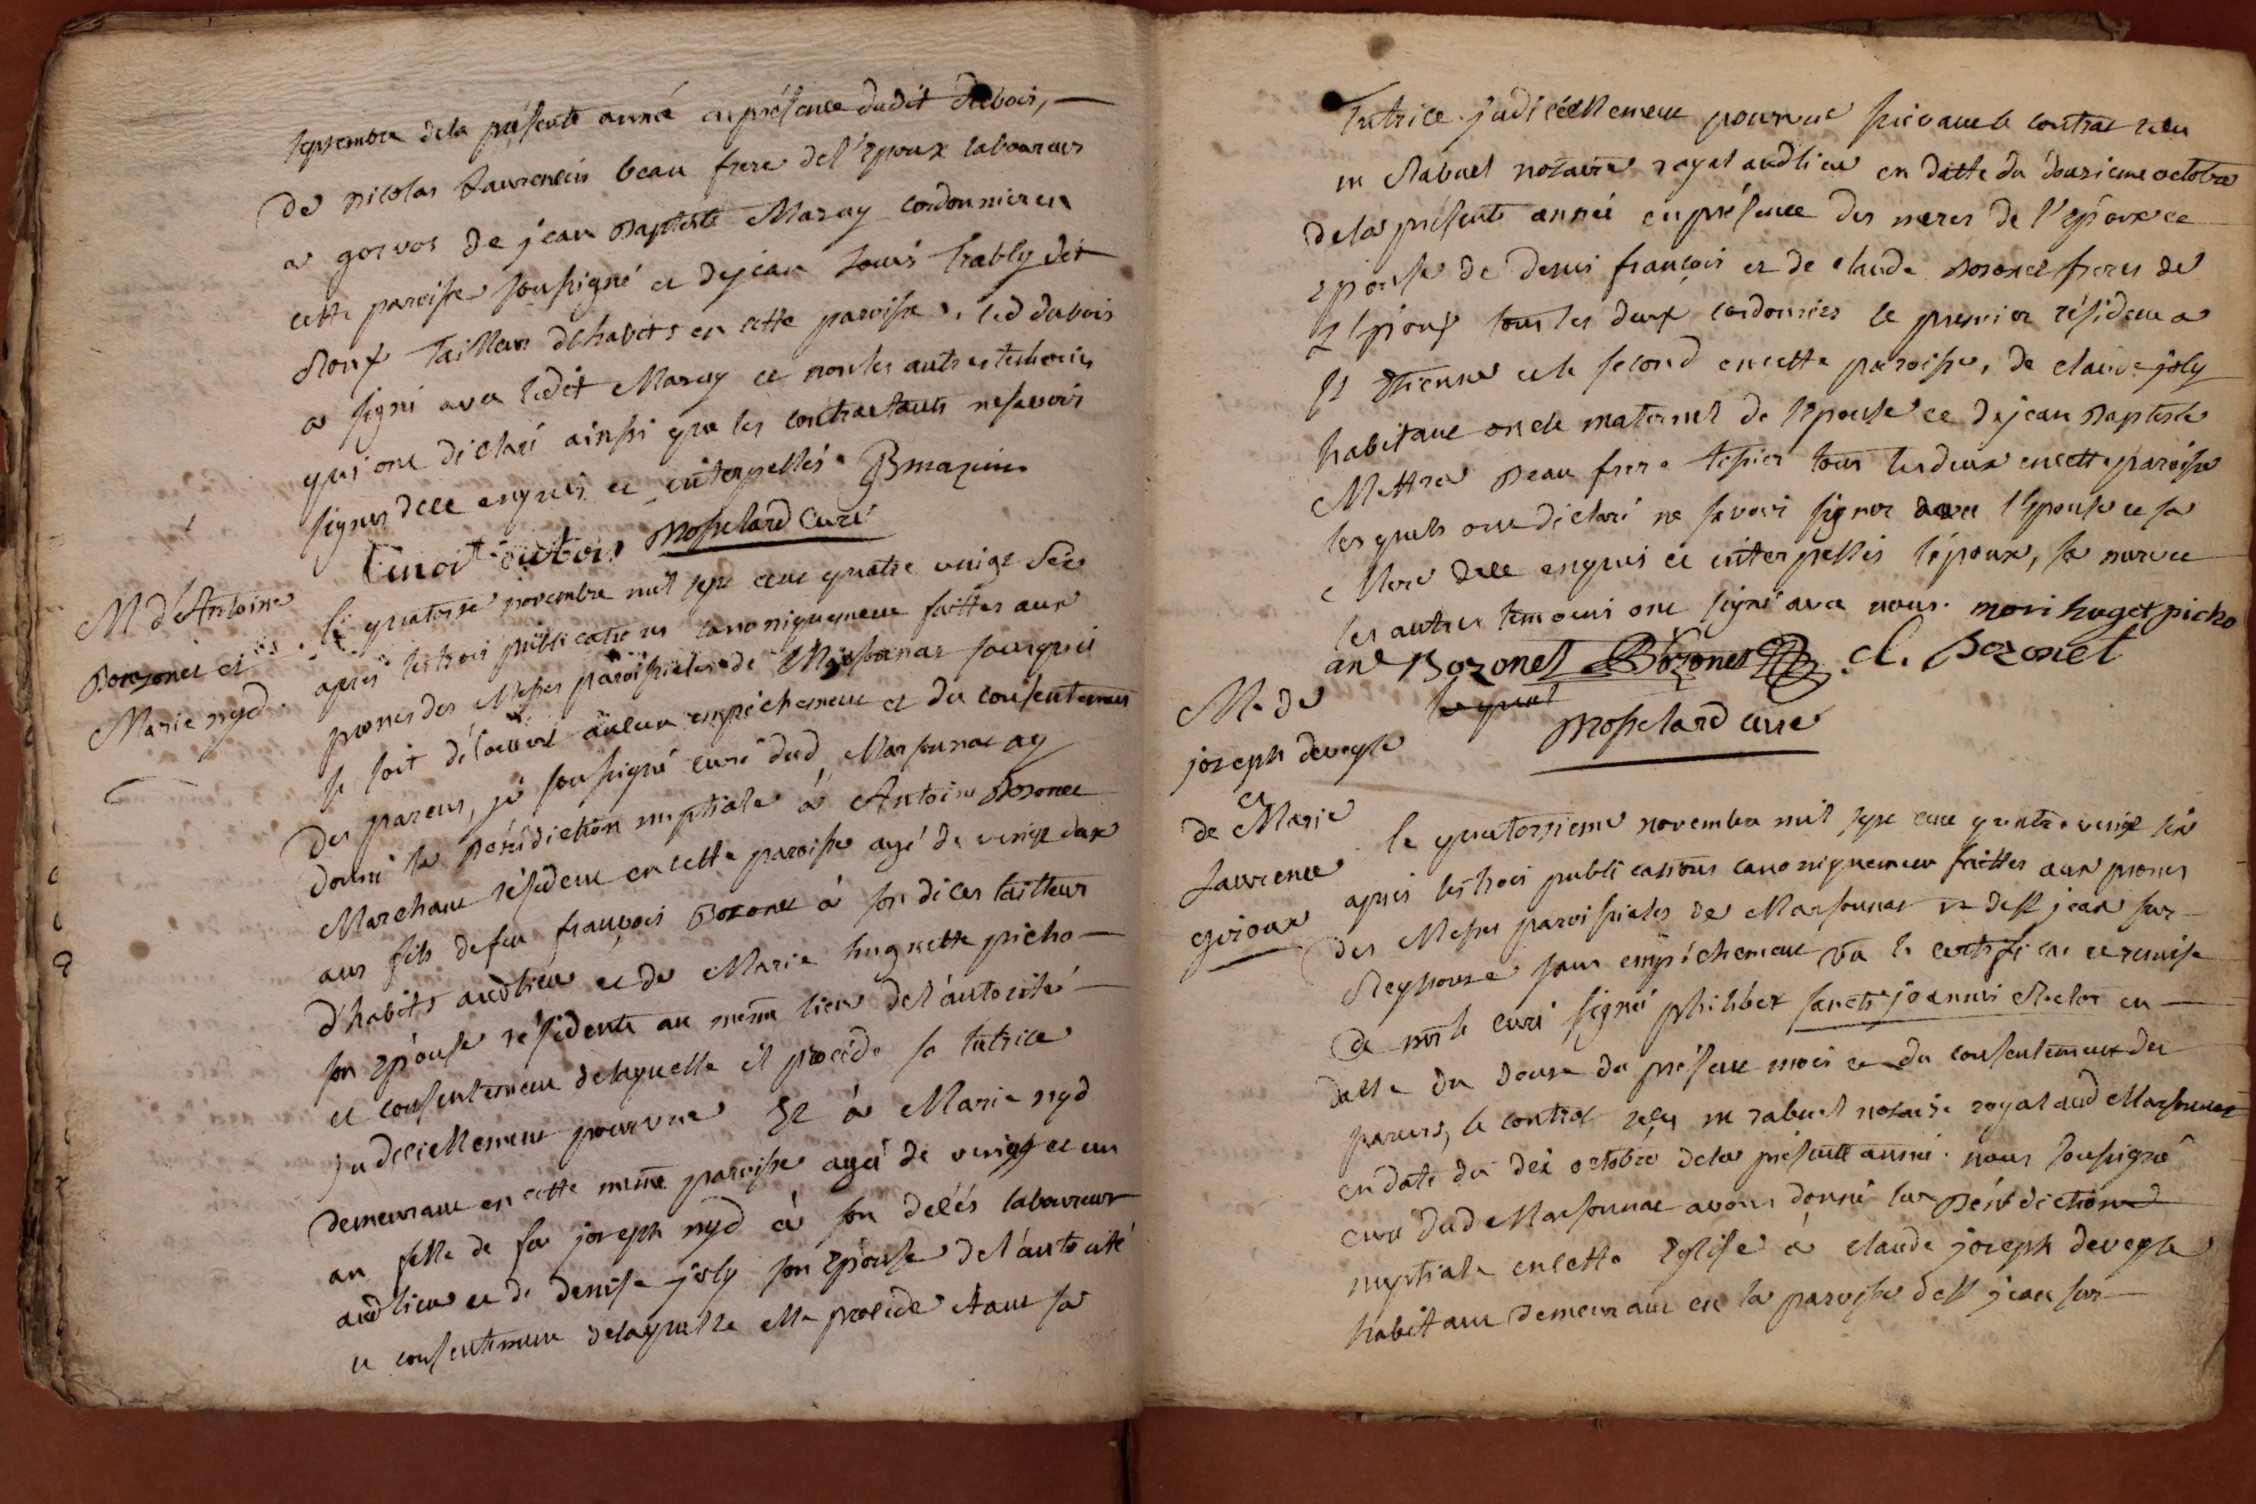 septembre dela présente anné en présence dudit dubois,
de nicolas Laurencin beau frere del'Epoux laboureur
a gorvos de jean Baptiste Mazuy cordonnier en
cette paroisse soussigné et dejean Louis trably dit
Roux tailleur d'habits en cette paroisse. led dubois
a signé avec ledit Mazuy et non les autres temoins
qui ont déclaré ainssi que les contractants ne savoir
signer dece enquis et interpellés. JBmazuier
Benoit dubois Mosselard Curé
M d'Antoine
Bozonet et
Marie nyd.
le quatorse novembre mil sept cent quatre vingt Sèr
apres les trois publications canoniquement faittes aux
prones des Messes paroissiales de Marsonnas sans qu'il
se soit découvert aucun empéchement et du consentement
des parens, je soussigné curé dud Marsonnac ay
donné la Bénédiction nuptiale à Antoine Bozonet
Marchant résident en cette paroisse agé de vingt deux
ans fils defeu françois Bozonet à son dices tailleur
d'habits audtlieu et de Marie huguette picho
son Epouse résidente au même lieu del'autorité
et consentement delaquelle il procéde sa tutrice
judiciellement pourvue Et à Marie nyd
demeurant en cette même paroisse agée de vingt et un
an fille de feu joseph nyd à son délés laboureur
audtlieu et de denise joly son Epouse del'autorité
et consentement delaquelle elle procéde étant sa
tutrice judiciellement pourvue suivant le contrat reçu
me Rabuel notaire royal audtlieu en datte du dousieme octobre
dela présente année en présence des meres de l'époux et
épouse de denis françois et de claude Bozonet freres de
l'Epoux tous les deux cordonniers le premier résident a
St Etienne et le second en cette paroisse, de claude joly
habitant oncle maternel de l'épouse et dejean Baptiste
Mettra Beau frere tissier tous les deux en cette paroisse
les quels ont déclaré ne savoir signer avec l'Epouse et sa
Mere dece enquis et interpellés l'époux, sa mere et
les autres temoins ont signé avec nous. mari huget picho
an Bozonet Bozonet cl. Bozonet
le quat
Mosselard curé
M. de
joseph deveyle
et
de Marie
Laurence
egiroux
le quatorsieme novembre mil sept cent quatre vingt sèr
apres les trois publications canoniquement faittes aux prones
des Messes paroissiales de Marsonnas et de St jean sur
Reyssouse sans empéchement vu le certificat et remise
de mr le curé signé philibert sancti joannis Rector en
datte du douse du présent mois et du consentement des
parens, le contrat reçu me rabuel notaire royal aud Marsonnas
en date du dix octobre dela présente année. nous soussigné
curé dud Marsonnac avons donné la Bénédiction
nuptiale en cette Eglise à claude joseph deveyle
habitant demeurant en la paroisse de St jean sur